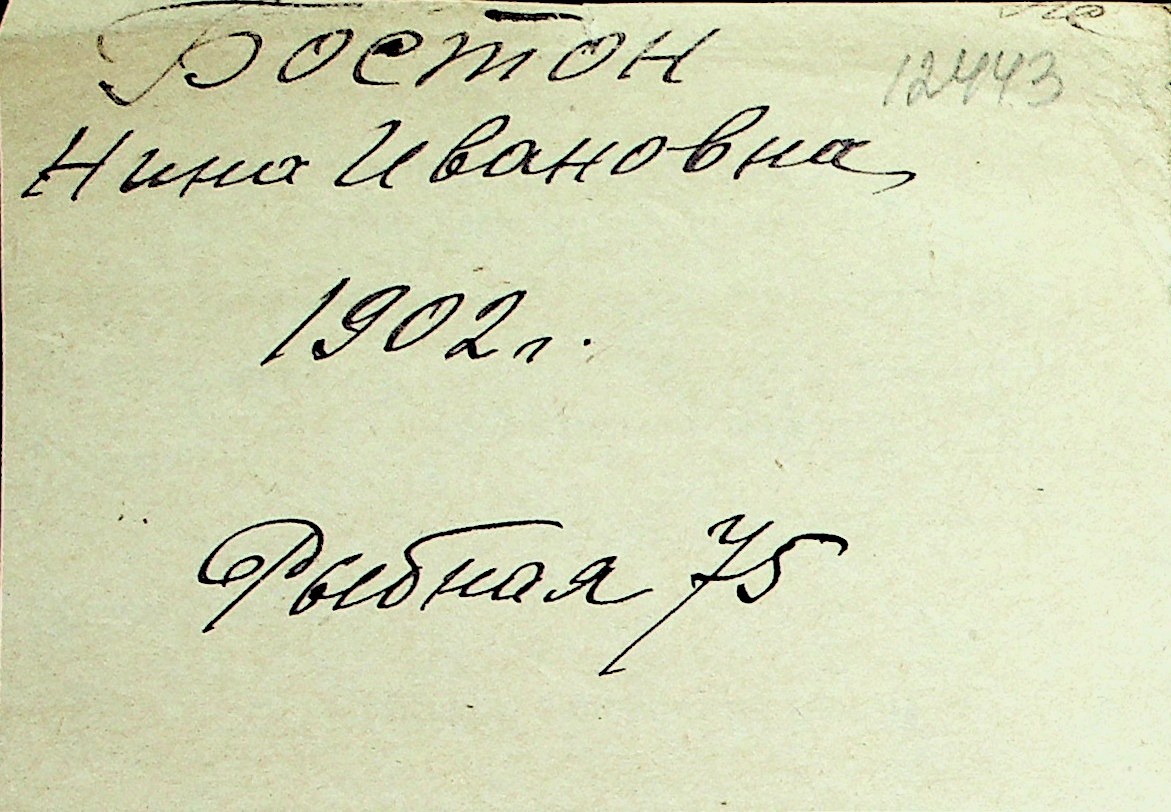 Бостон 12443
Нина Ивановна
1902 г.
Рыбная 75